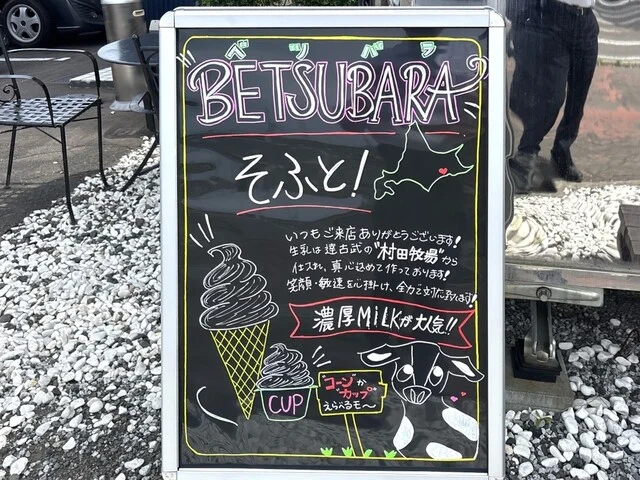 ベツバラ
BETSUBARA
そふと!
いつもご来店ありがとうございます!
生乳は達古武の"村田牧場"から
仕入れ、真心込めて作っております!
笑顔・敏速を心掛け、全力で対応致します!
濃厚MiLKが大人気!!
"コーン"か
"カップ"
えらべるモ〜
CUP